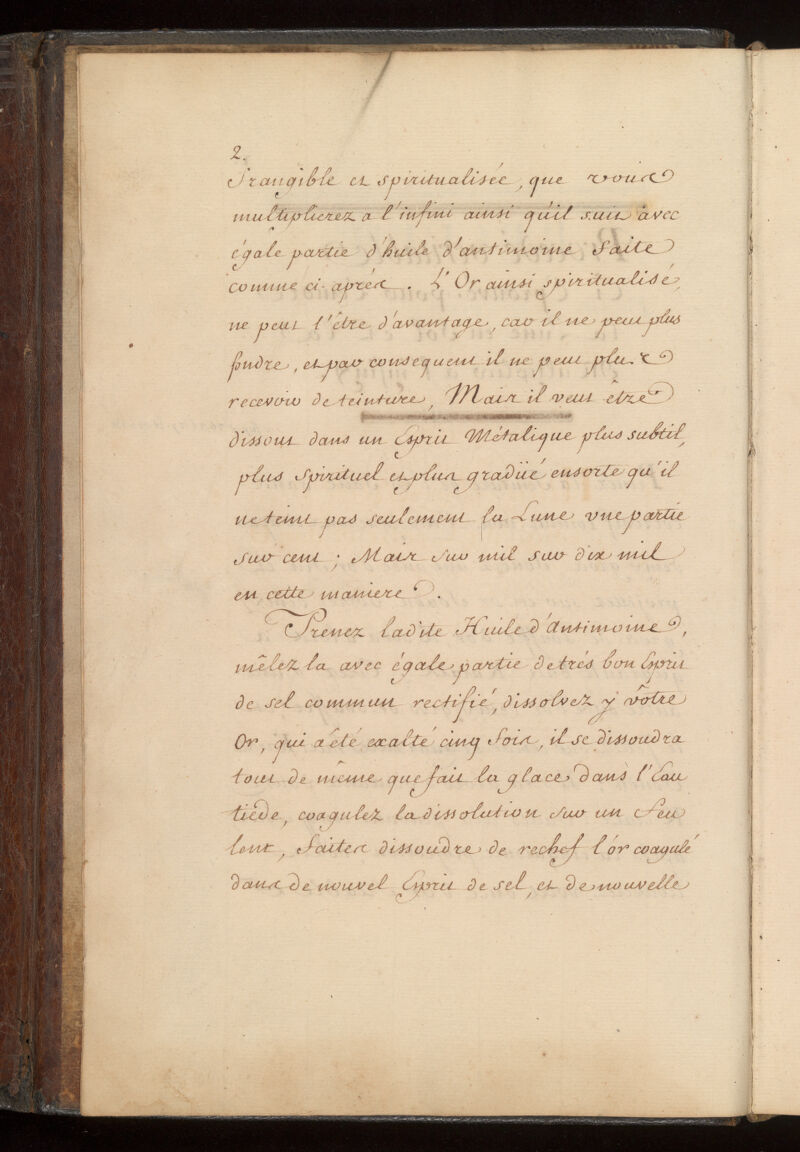 2.
frangible et spiritualisée, que vous
multiplierez a l'infini ainsi qu'il suit avec
égale partie d'huile d'antimoine faite
comme ci-aprés. L'Or ainsi spiritualisé,
ne peut l'être d'avantage, car il ne peut plus
fondre, et par consequent il ne peut plus
recevoir de teinture, Mais il veut être
dissout dans un Esprit Métalique plus subtil,
plus spirituel et plus gradüé ensorte qu'il
ne teint pas seulement la Lune vne partie
sur cent; Mais sur mil sur dix mil
en cette maniere.
Prenez ladite Huile d'Antimoine,
mêlez la avec égale partie de trés bon Esprit
de sel commun rectifié, dissolvez y vôtre
Or, qui a été exalté cinq fois, il se dissoudra
tout de même que fait la glace dans l'Eau
tiéde, coagulez la dissolution sur un feu
lent, faites dissoudre de rechef l'or coagulé
dans de nouvel Esprit de sel, et de nouvelle